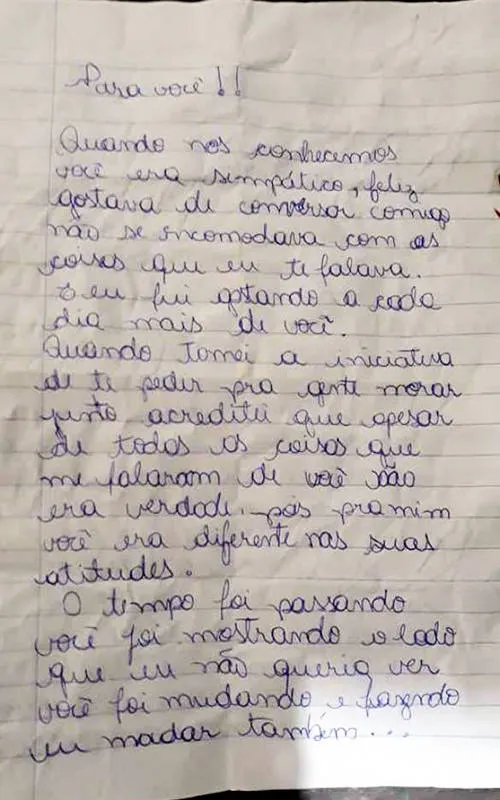 Para você!!
Quando nos conhecemos
você era simpático, feliz
gostava de conversar comigo
não se incomodava com as
coisas que eu te falava.
E eu fui gostando a cada
dia mais de você.
Quando tomei a iniciativa
de te pedir pra gente morar
junto acreditei que apesar
de todas as coisas que
me falaram de você não
era verdade, pois pra mim
você era diferente nas suas
atitudes.
O tempo foi passando
você foi mostrando o lado
que eu não queria ver
você foi mudando e fazendo
eu madar também...